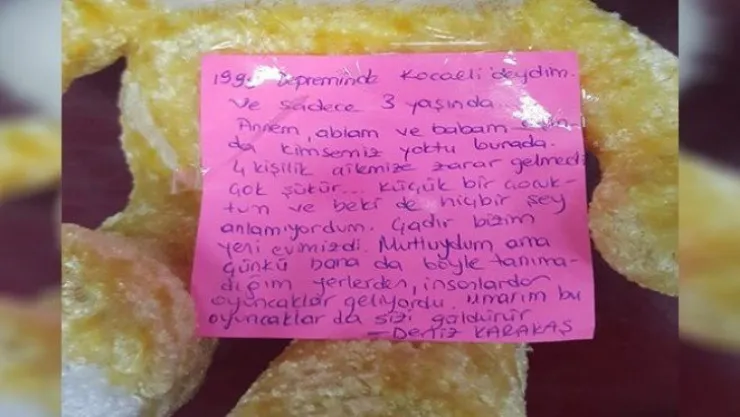 1999 Depreminde Kocaeli'deydim.
Ve sadece 3 yaşında...
Annem, ablam ve babam
da kimsemiz yoktu burada.
4 kişilik ailemize zarar gelmedi
çok şükür... Küçük bir çocuk-
tum ve belki de hiçbir şey
anlamıyordum. Çadır bizim
yeni evimizdi. Mutluydum ama
çünkü bana da böyle tanıma-
dığım yerlerden, insanlardan
oyuncaklar geliyordu. Umarım bu
oyuncaklar da sizi güldürür
— Deniz KARAKAŞ